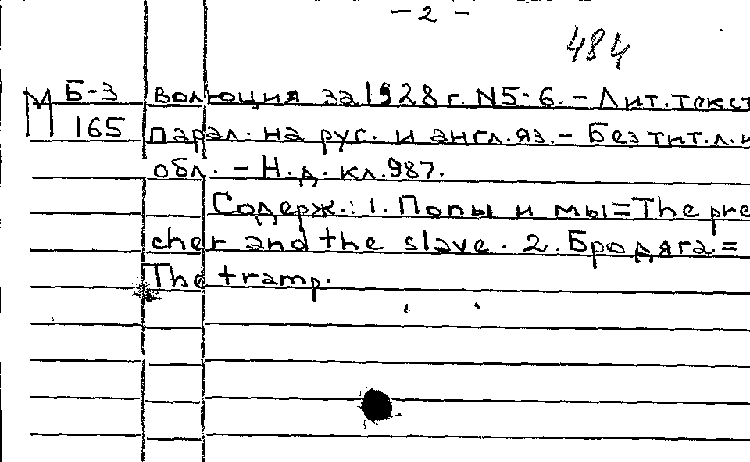 – 2 –
484
М Б-3 волюция за 1928 г. N5-6. – Лит. текст
165 парал. на рус. и англ. яз. – Без тит. л. и
обл. – Н. д. кл. 987.
Содерж.: 1. Попы и мы = The prea
cher and the slave. 2. Бродяга =
The tramp.